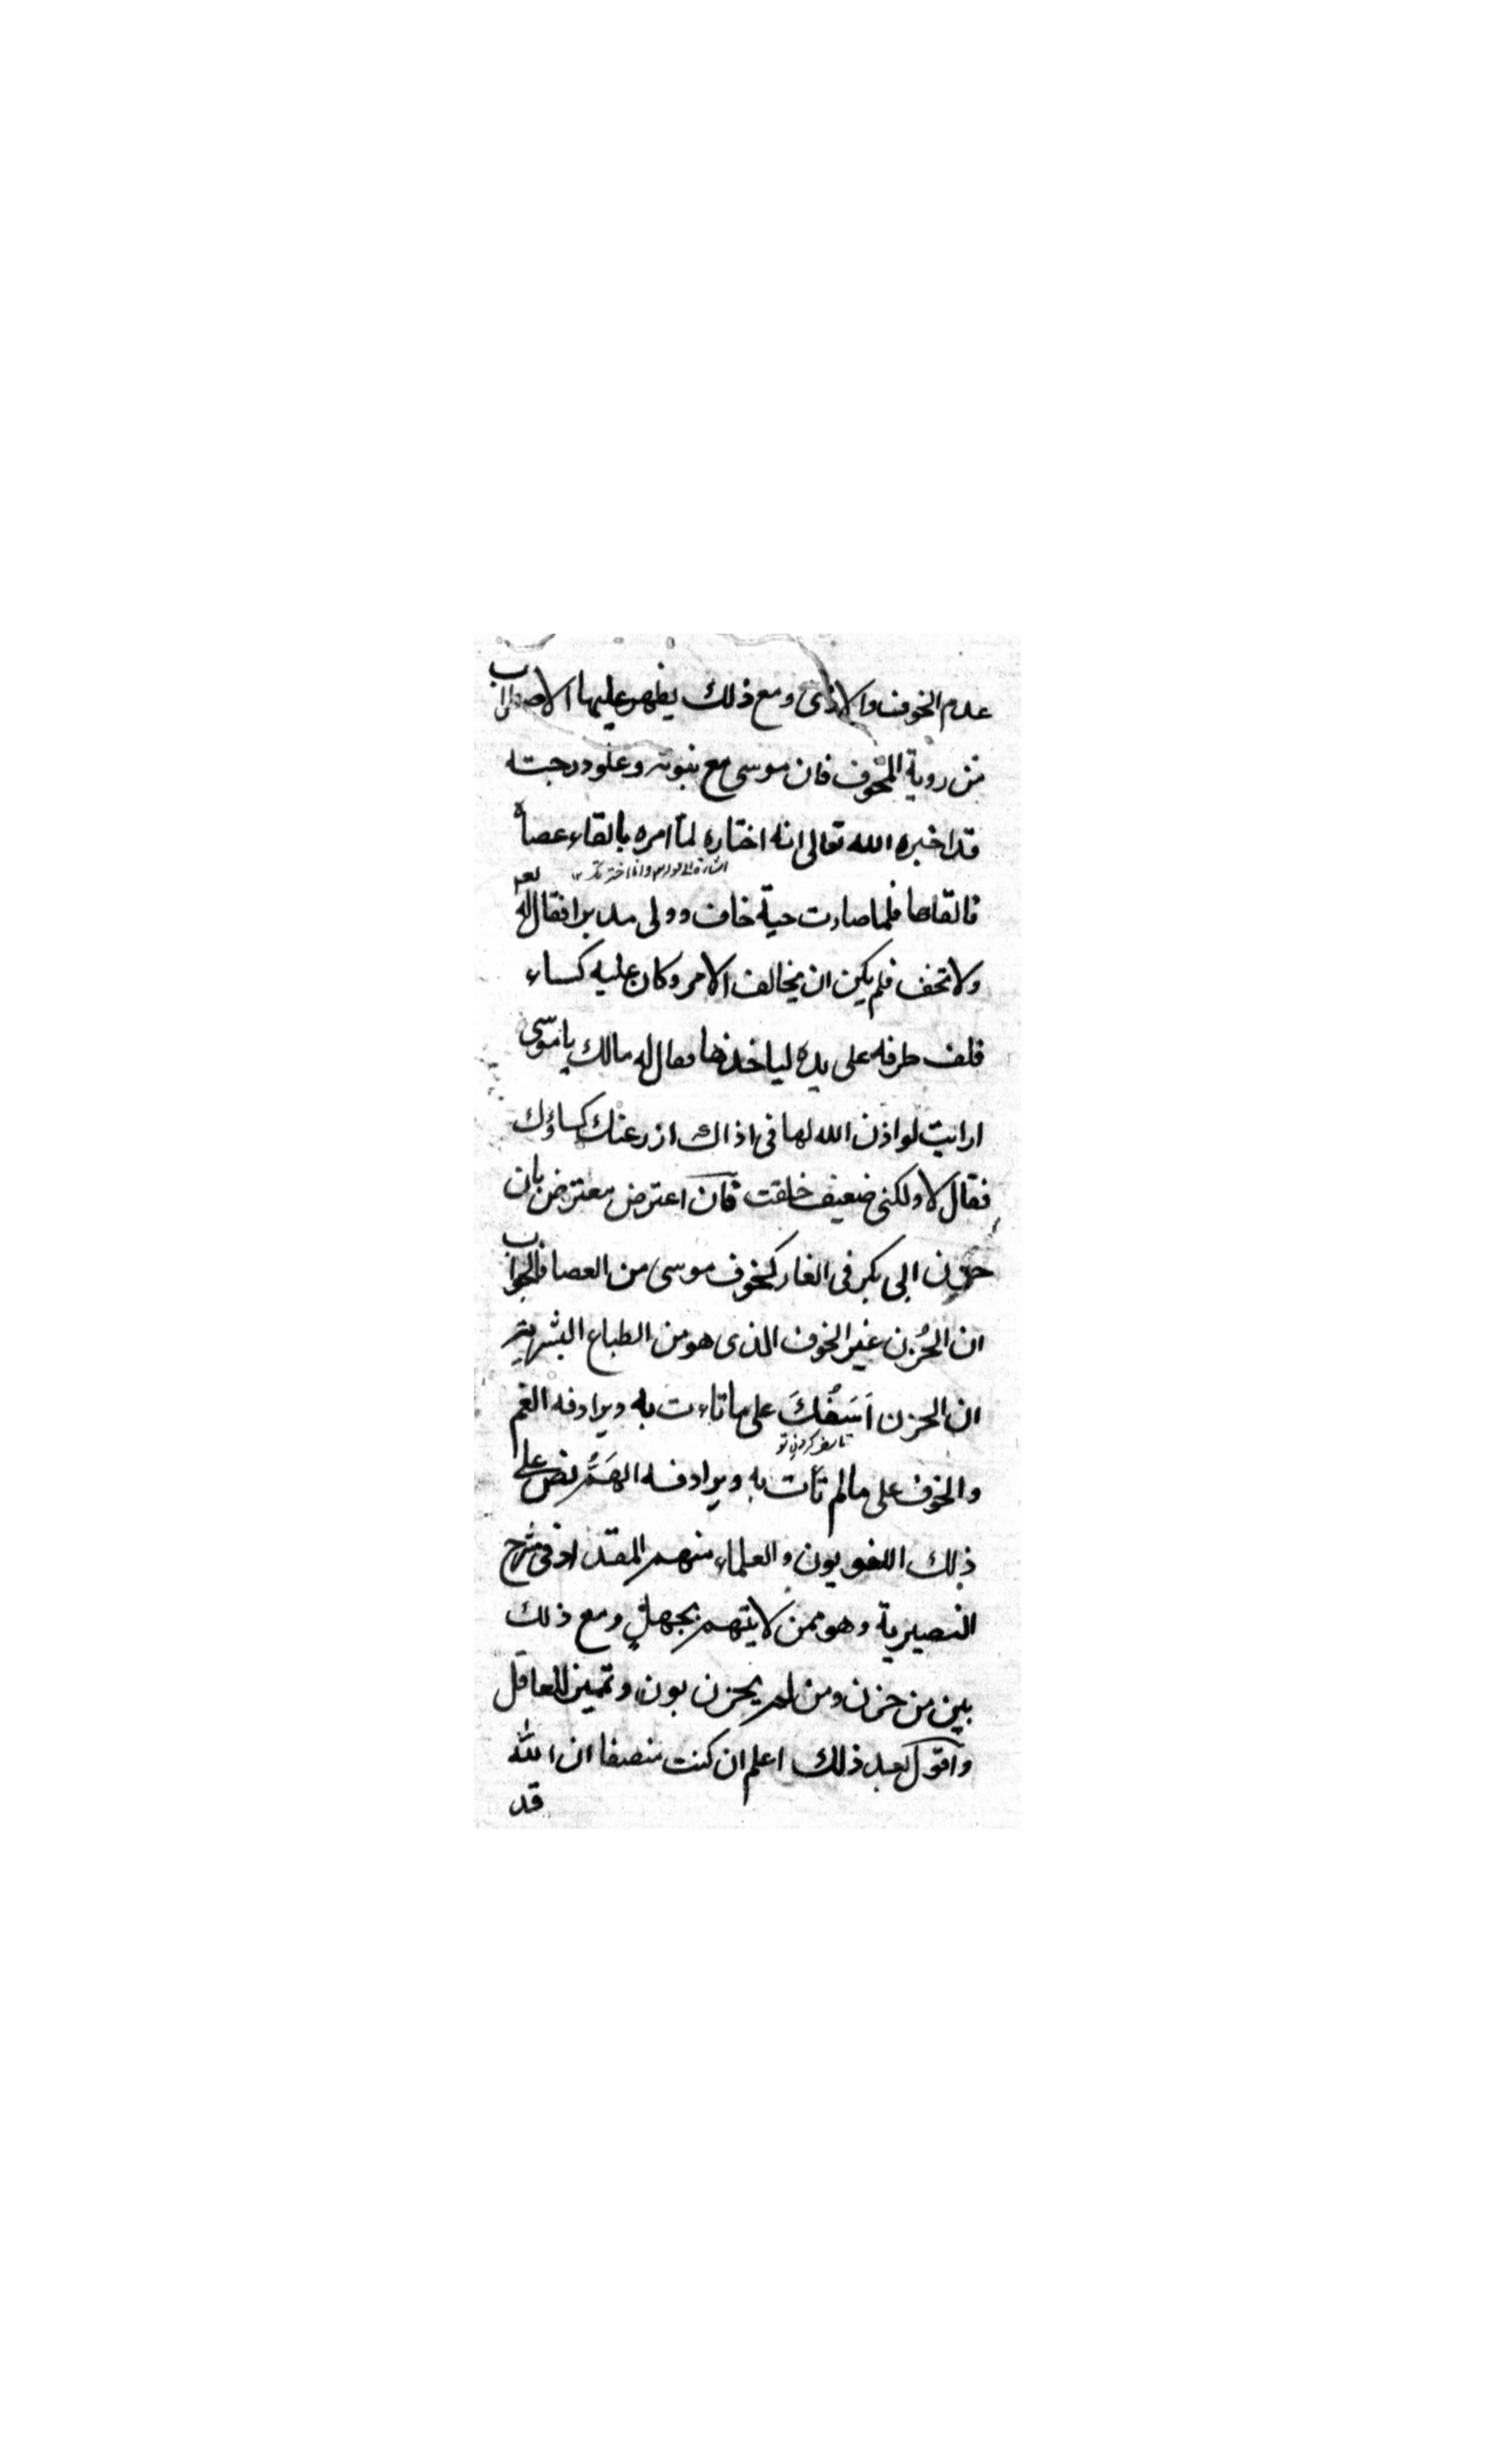 عدم الخوف والاذى ومع ذلك يظهر عليها الاضطراب
من روية المخوف فان موسى مع نبوته وعلو درجته
قد اخبره الله تعالى انه اختاره لما امره بالقاء عصاه
فالقاها فلما صارت حية خاف وولى مدبرا فقال له
ولا تخف فلم يكن ان يخالف الامر وكان عليه كساء
فلف طرفه على يده لياخذها فقال له مالك يا موسى
ارايت لو اذن الله لها في اذاك ارد عنك كساؤك
فقال لا ولكنى ضعيف خلقت فان اعترض معترض بان
حزن ابى بكر فى الغار كخوف موسى من العصا فالجواب
ان الحُزن غير الخوف الذى هو من الطباع البشرية
ان الحزن اَسَفُكَ على ما تاءت به ويرادفه الغم
تاسف كردن تو
والخوف على ما لم تأت به ويرادفه الهَمُّ نص على
ذلك اللغويون والعلماء منهم المقداد فى شرح
النصيرية وهو ممن لا يتهم بجهلٍ ومع ذلك
بين من حزن ومن لم يحزن بون وتميز للعاقل
واقول بعد ذلك اعلم ان كنت منصفا ان الله
قد